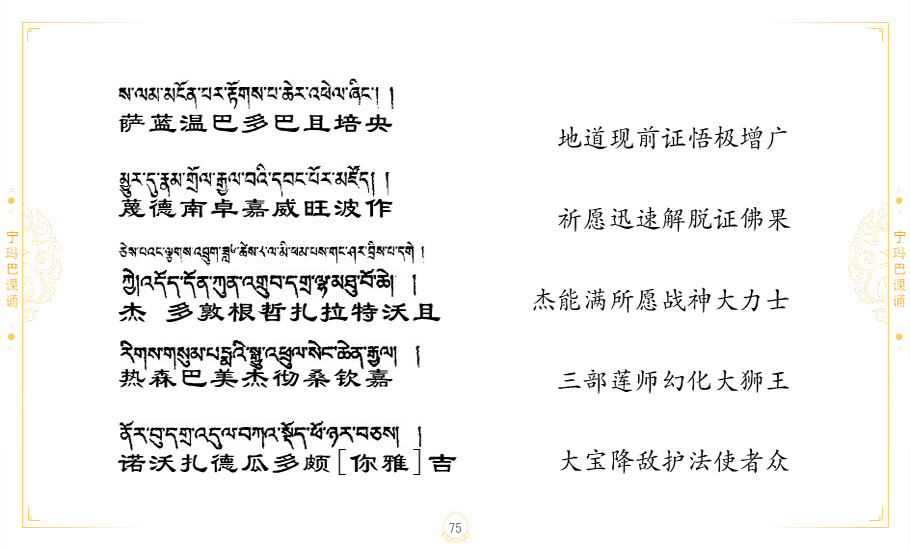 ས་ལམ་མངོན་པར་རྟོགས་པ་ཆེར་འཕེལ་ཞིང་། །
萨蓝温巴多巴且培央
地道现前证悟极增广
མྱུར་དུ་རྣམ་གྲོལ་རྒྱལ་བའི་དབང་པོར་མཛོད། །
蔑德南卓嘉威旺波作
祈愿迅速解脱证佛果
ཅེས་པའང་ལྕགས་འབྲུག་ཟླ་༦་ཚེས་༨་ལ་མི་ཕམ་པས་གང་ཤར་བྲིས་པ་དགེ །
ཀྱེ།འདོད་དོན་ཀུན་འགྲུབ་དགྲ་ལྷ་མཐུ་བོ་ཆེ། །
杰 多敦根哲扎拉特沃且
杰能满所愿战神大力士
རིགས་གསུམ་པདྨའི་སྒྱུ་འཕྲུལ་སེང་ཆེན་རྒྱལ། །
热森巴美杰彻桑钦嘉
三部莲师幻化大狮王
ནོར་བུ་དགྲ་འདུལ་བཀའ་སྡོད་ཕོ་ཉར་བཅས། །
诺沃扎德瓜多颇[你雅]吉
大宝降敌护法使者众
宁玛巴课诵
宁玛巴课诵
75